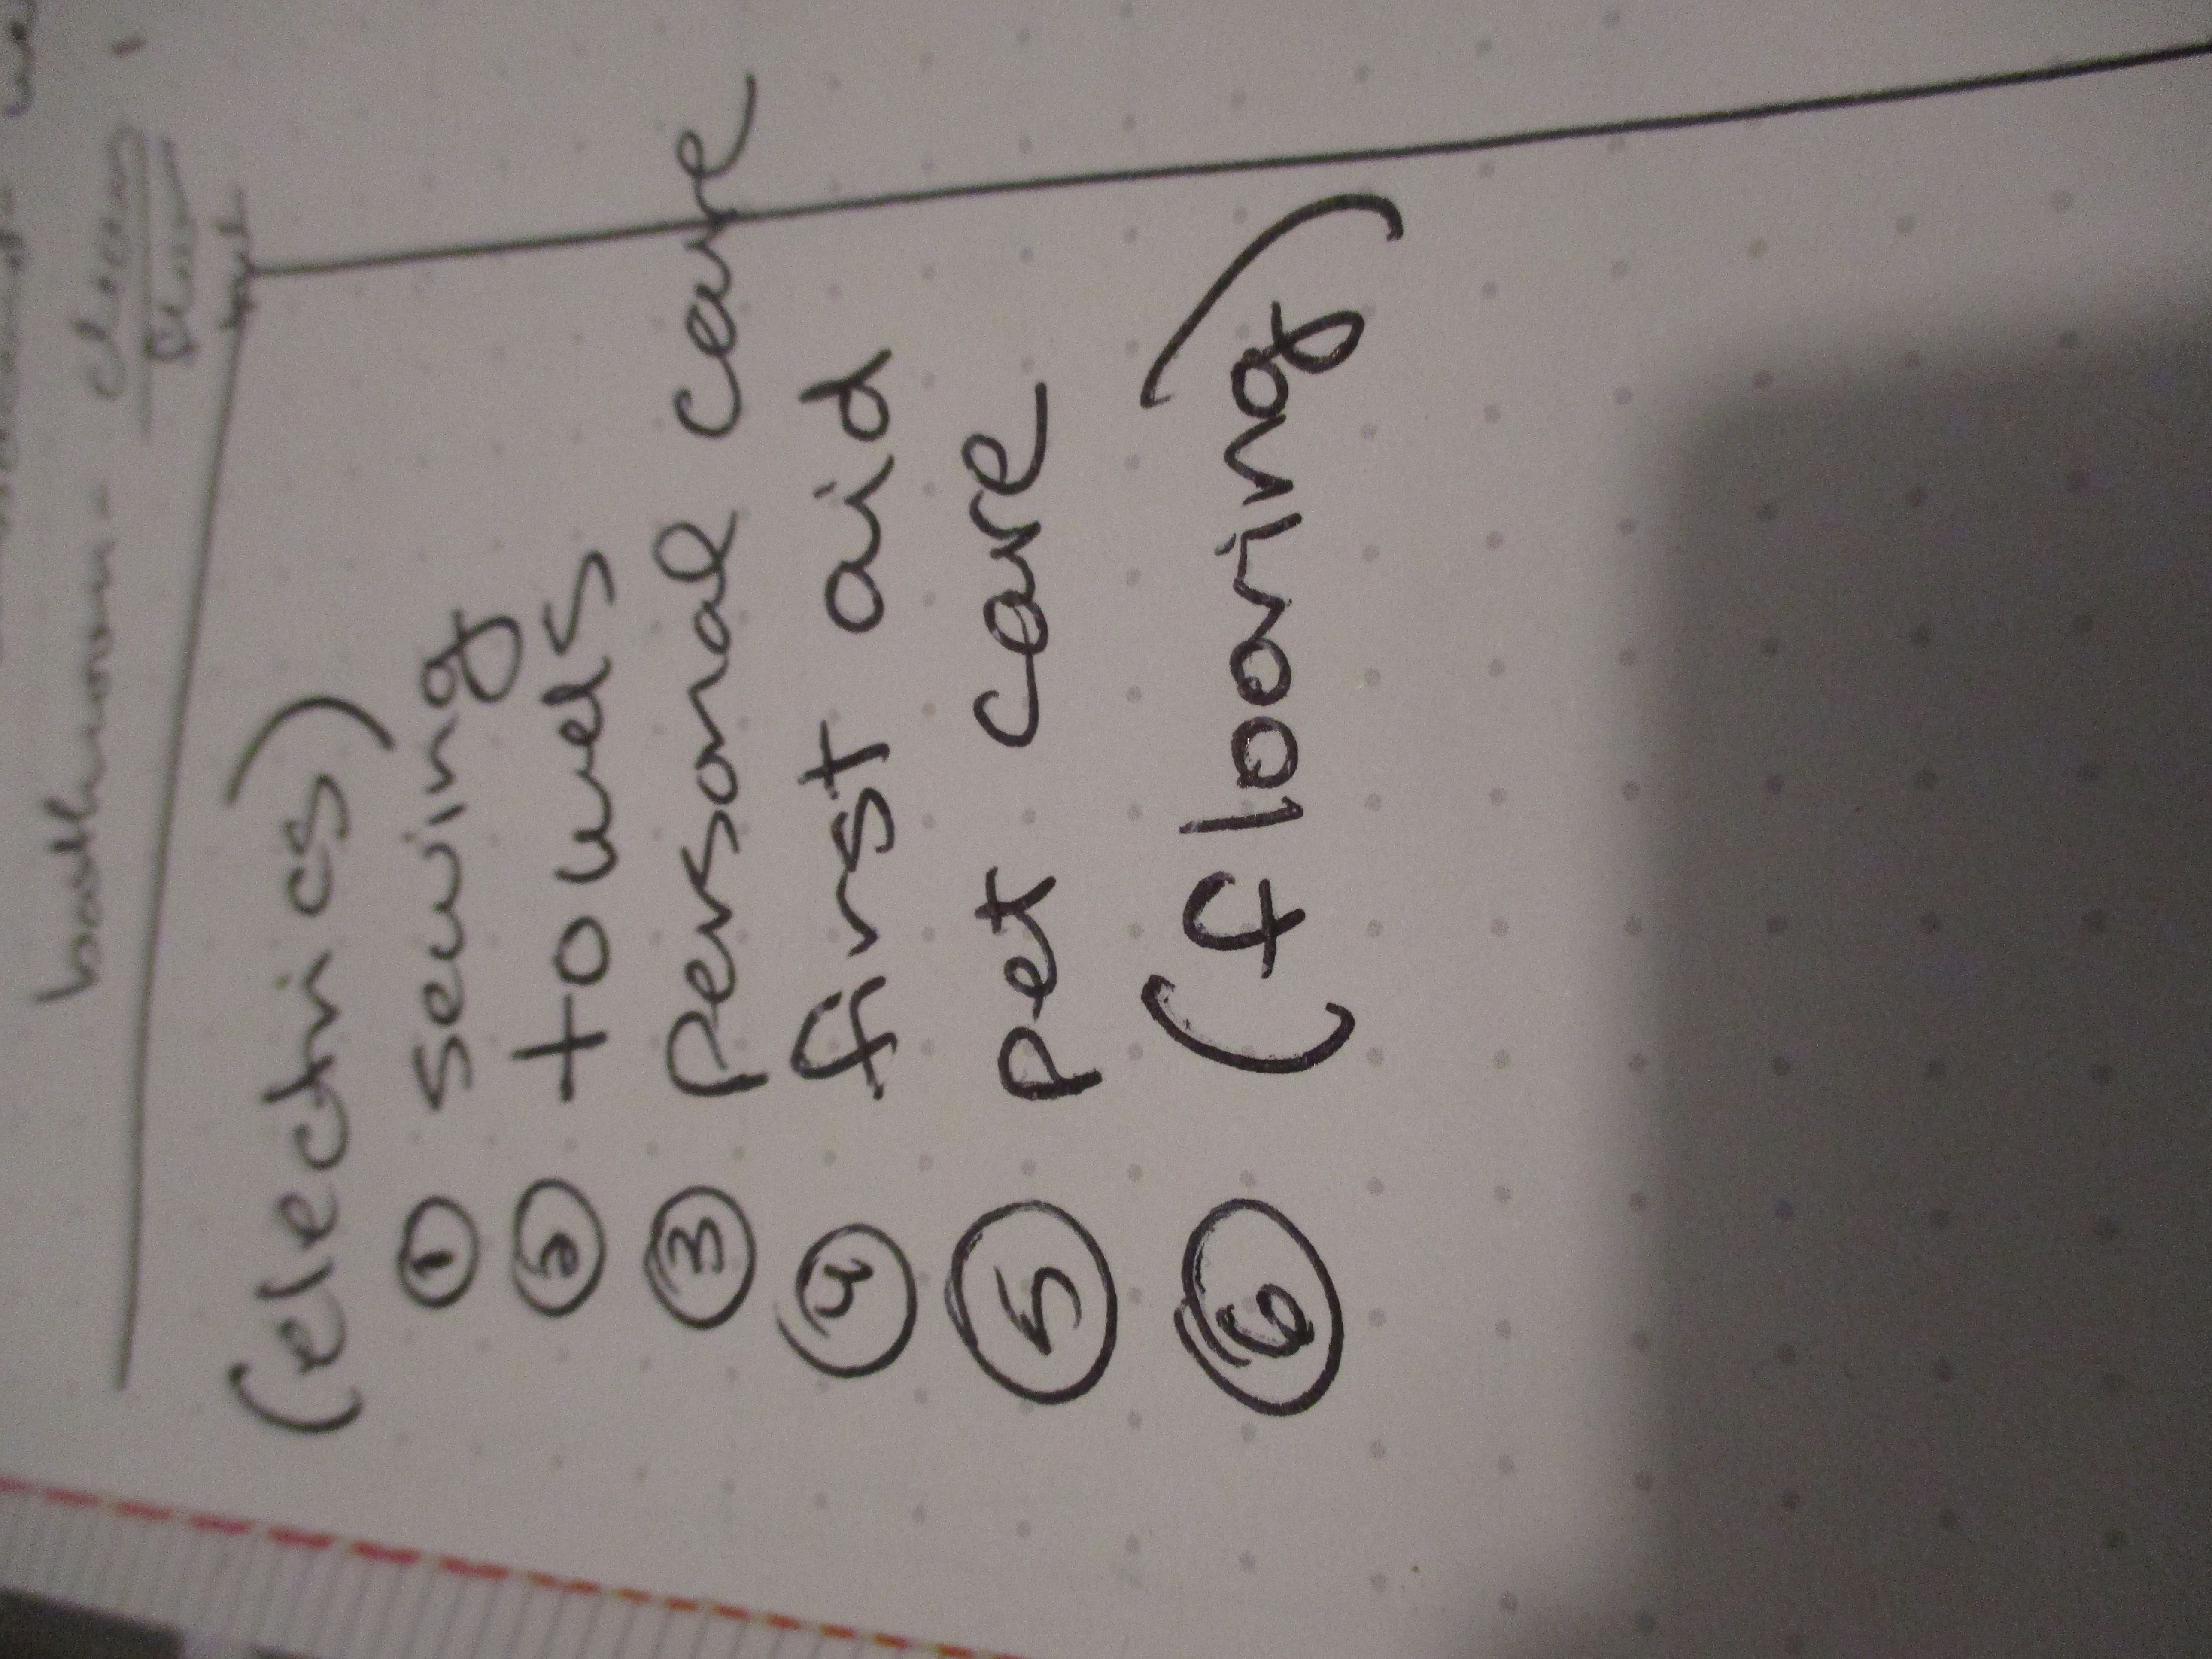 bathroom - clean
(electrics)
① sewing
② towels
③ Personal care
④ first aid
⑤ Pet care
⑥ (flooring)